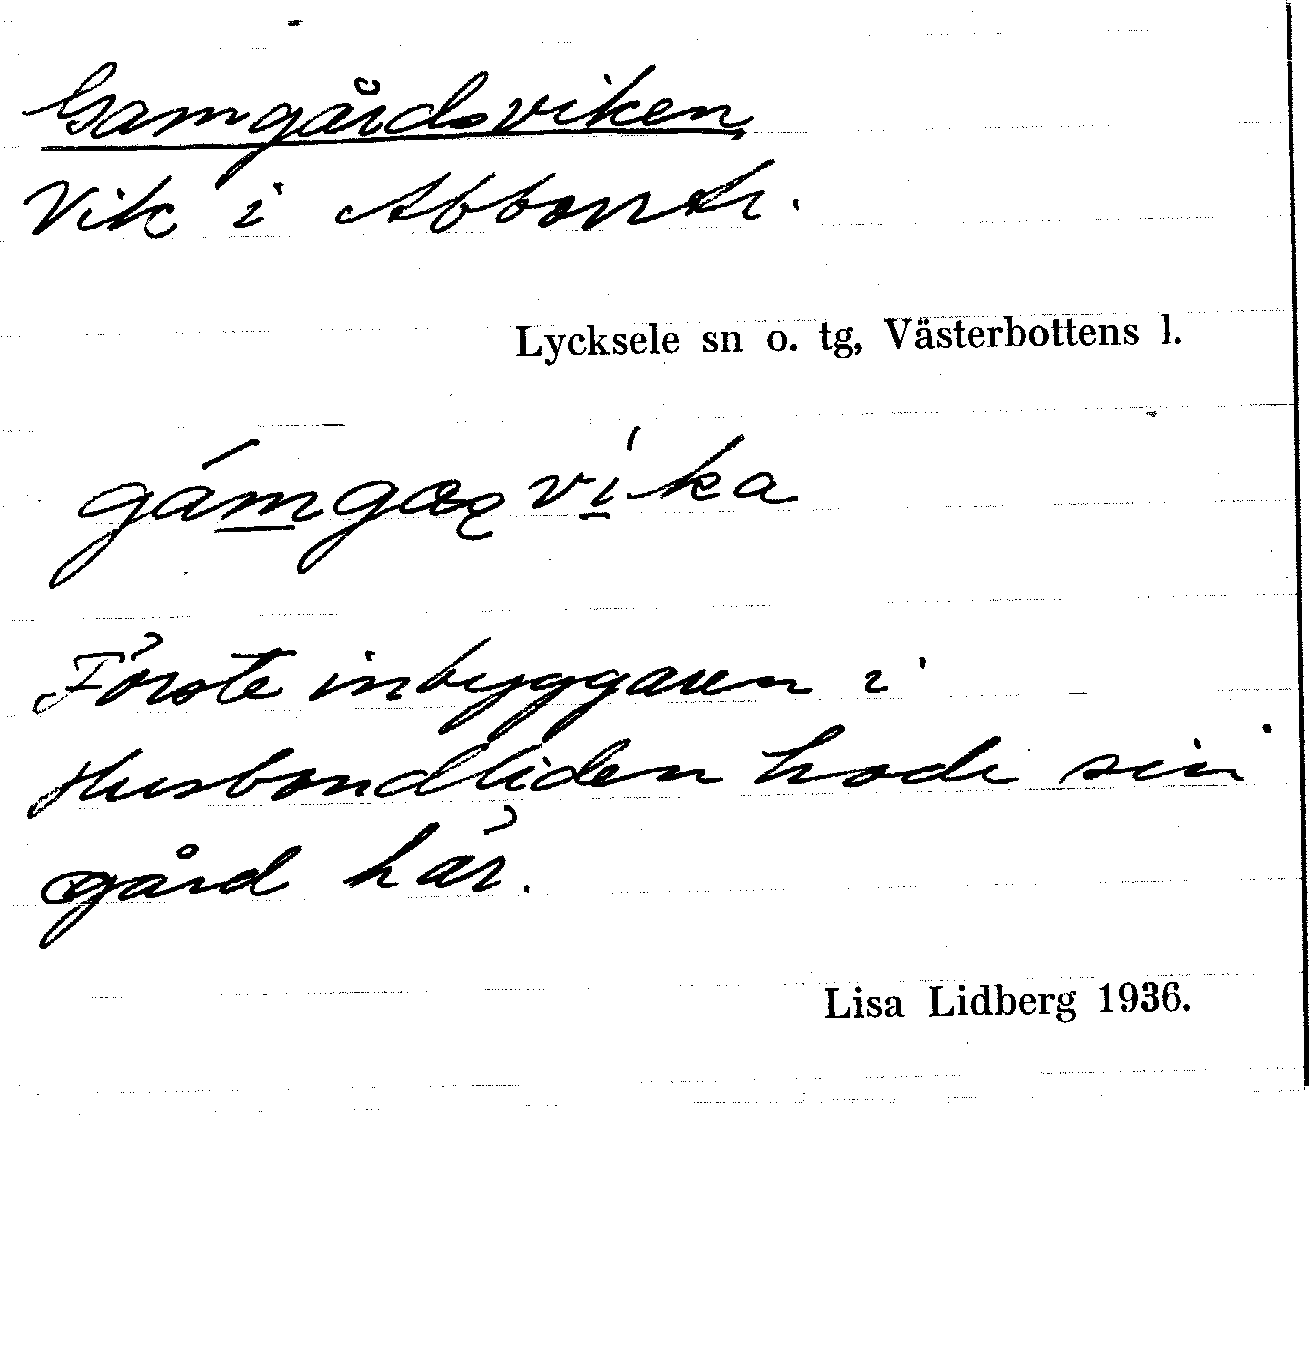 Gamgårdsviken
Vik i Abbortr.
Lycksele sn o. tg, Västerbottens l.
Förste inbyggaren i
Husbondliden hade sin
gård här.
Lisa Lidberg 1936.